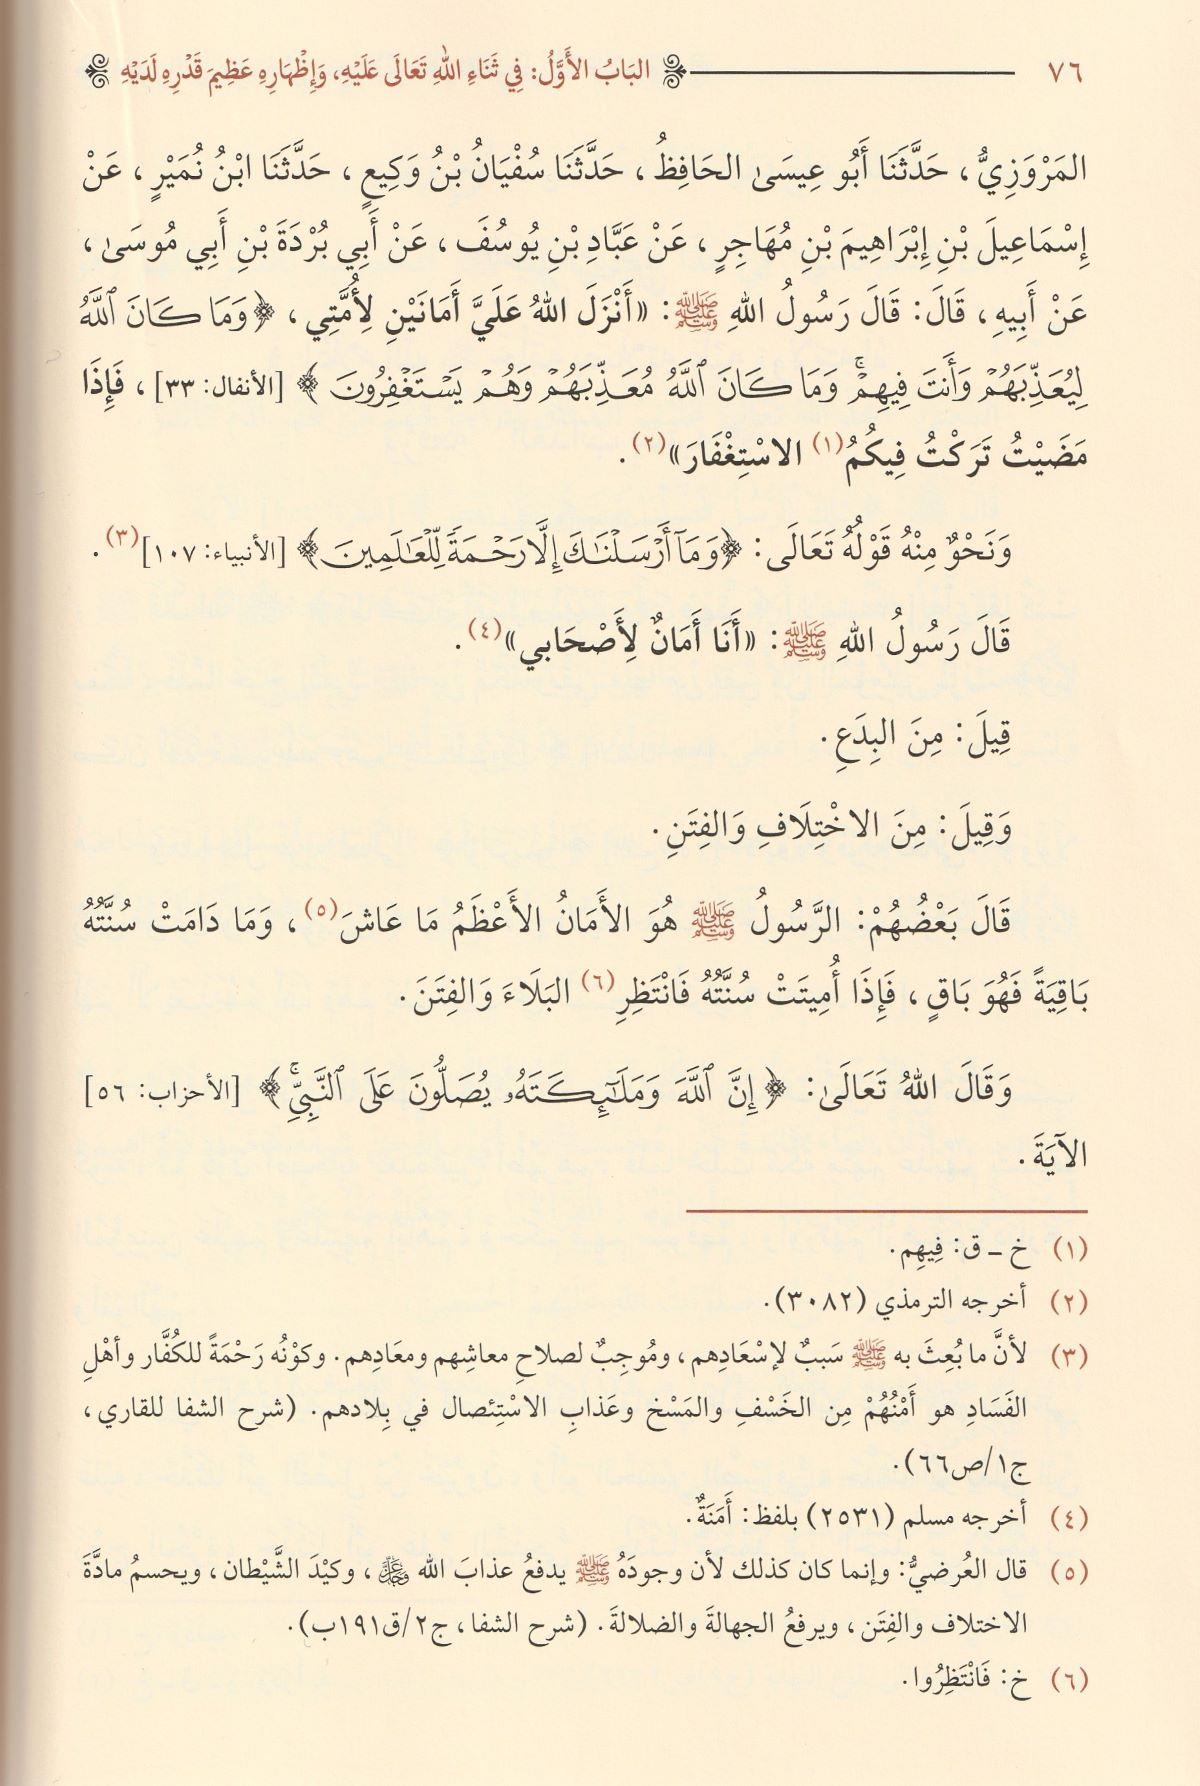 ٧٦ البَابُ الأَوَّلُ: فِي ثَنَاءِ اللهِ تَعَالَى عَلَيْهِ، وَإِظْهَارِهِ عَظِيمَ قَدْرِهِ لَدَيْهِ
المَرْوَزِيُّ، حَدَّثَنَا أَبُو عِيسَىٰ الحَافِظُ، حَدَّثَنَا سُفْيَانُ بْنُ وَكِيعٍ، حَدَّثَنَا ابْنُ نُمَيْرٍ، عَنْ
إِسْمَاعِيلَ بْنِ إِبْرَاهِيمَ بْنِ مُهَاجِرٍ، عَنْ عَبَّادِ بْنِ يُوسُفَ، عَنْ أَبِي بُرْدَةَ بْنِ أَبِي مُوسَىٰ،
عَنْ أَبِيهِ، قَالَ: قَالَ رَسُولُ اللهِ ﷺ: «أَنْزَلَ اللهُ عَلَيَّ أَمَانَيْنِ لِأُمَّتِي، ﴿وَمَا كَانَ ٱللَّهُ
لِيُعَذِّبَهُمْ وَأَنتَ فِيهِمْۚ وَمَا كَانَ ٱللَّهُ مُعَذِّبَهُمْ وَهُمْ يَسْتَغْفِرُونَ﴾ [الأنفال: ٣٣]، فَإِذَا
مَضَيْتُ تَرَكْتُ فِيكُمُ(١) الاسْتِغْفَارَ»(٢).
وَنَحْوٌ مِنْهُ قَوْلُهُ تَعَالَى: ﴿وَمَآ أَرْسَلْنَٰكَ إِلَّا رَحْمَةً لِّلْعَٰلَمِينَ﴾ [الأنبياء: ١٠٧](٣).
قَالَ رَسُولُ اللهِ ﷺ: «أَنَا أَمَانٌ لِأَصْحَابي»(٤).
قِيلَ: مِنَ البِدَعِ.
وَقِيلَ: مِنَ الاخْتِلَافِ وَالفِتَنِ.
قَالَ بَعْضُهُمْ: الرَّسُولُ ﷺ هُوَ الأَمَانُ الأَعْظَمُ مَا عَاشَ(٥)، وَمَا دَامَتْ سُنَّتُهُ
بَاقِيَةً فَهُوَ بَاقٍ، فَإِذَا أُمِيتَتْ سُنَّتُهُ فَانْتَظِرِ(٦) البَلَاءَ وَالفِتَنَ.
وَقَالَ اللهُ تَعَالَىٰ: ﴿إِنَّ ٱللَّهَ وَمَلَٰٓئِكَتَهُۥ يُصَلُّونَ عَلَى ٱلنَّبِيِّۚ﴾ [الأحزاب: ٥٦]
الآيَةَ.
(١) خ ـ ق: فِيهِم.
(٢) أخرجه الترمذي (٣٠٨٢).
(٣) لأنَّ ما بُعِثَ به ﷺ سَببٌ لإسْعَادِهم، ومُوجِبٌ لصلاحِ معاشِهم ومعَادِهم. وكوْنُه رَحْمَةً للكُفَّار وأهْلِ
الفَسَادِ هو أَمْنُهُمْ مِن الخَسْفِ والمَسْخ وعَذابِ الاسْتِئصال في بِلادهم. (شرح الشفا للقاري،
ج١/ص٦٦).
(٤) أخرجه مسلم (٢٥٣١) بلفظ: أَمَنَةٌ.
(٥) قال العُرضيُّ: وإنما كان كذلك لأن وجودَهُ ﷺ يدفعُ عذابَ الله ﷻ، وكيْدَ الشَّيْطان، ويحسمُ مادَّةَ
الاختلاف والفِتَن، ويرفعُ الجهالةَ والضلالةَ. (شرح الشفا، ج٢/ق١٩١ب).
(٦) خ: فَانْتَظِرُوا.